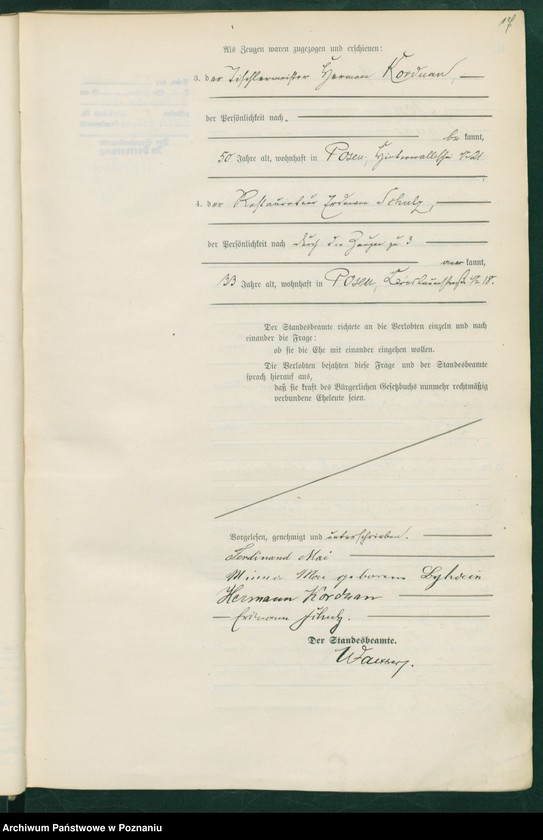 17
Als Zeugen waren zugezogen und erschienen:
3. der Tischlermeister Herman Korduan,
der Persönlichkeit nach
be kannt,
50 Jahre alt, wohnhaft in Posen,
4. der Restaurateur Erdmann Schulz,
der Persönlichkeit nach durch den Zeugen zu 3
aner kannt,
33 Jahre alt, wohnhaft in Posen, 18.
Der Standesbeamte richtete an die Verlobten einzeln und nach
einander die Frage:
ob sie die Ehe mit einander eingehen wollen.
Die Verlobten bejahten diese Frage und der Standesbeamte
sprach hierauf aus,
daß sie kraft des Bürgerlichen Gesetzbuchs nunmehr rechtmäßig
verbundene Eheleute seien.
Vorgelesen, genehmigt und unterschrieben.
Ferdinand Mai
Minna Mai geborene
Hermann Korduan
Erdmann Schulz.
Der Standesbeamte.
Archiwum Państwowe w Poznaniu